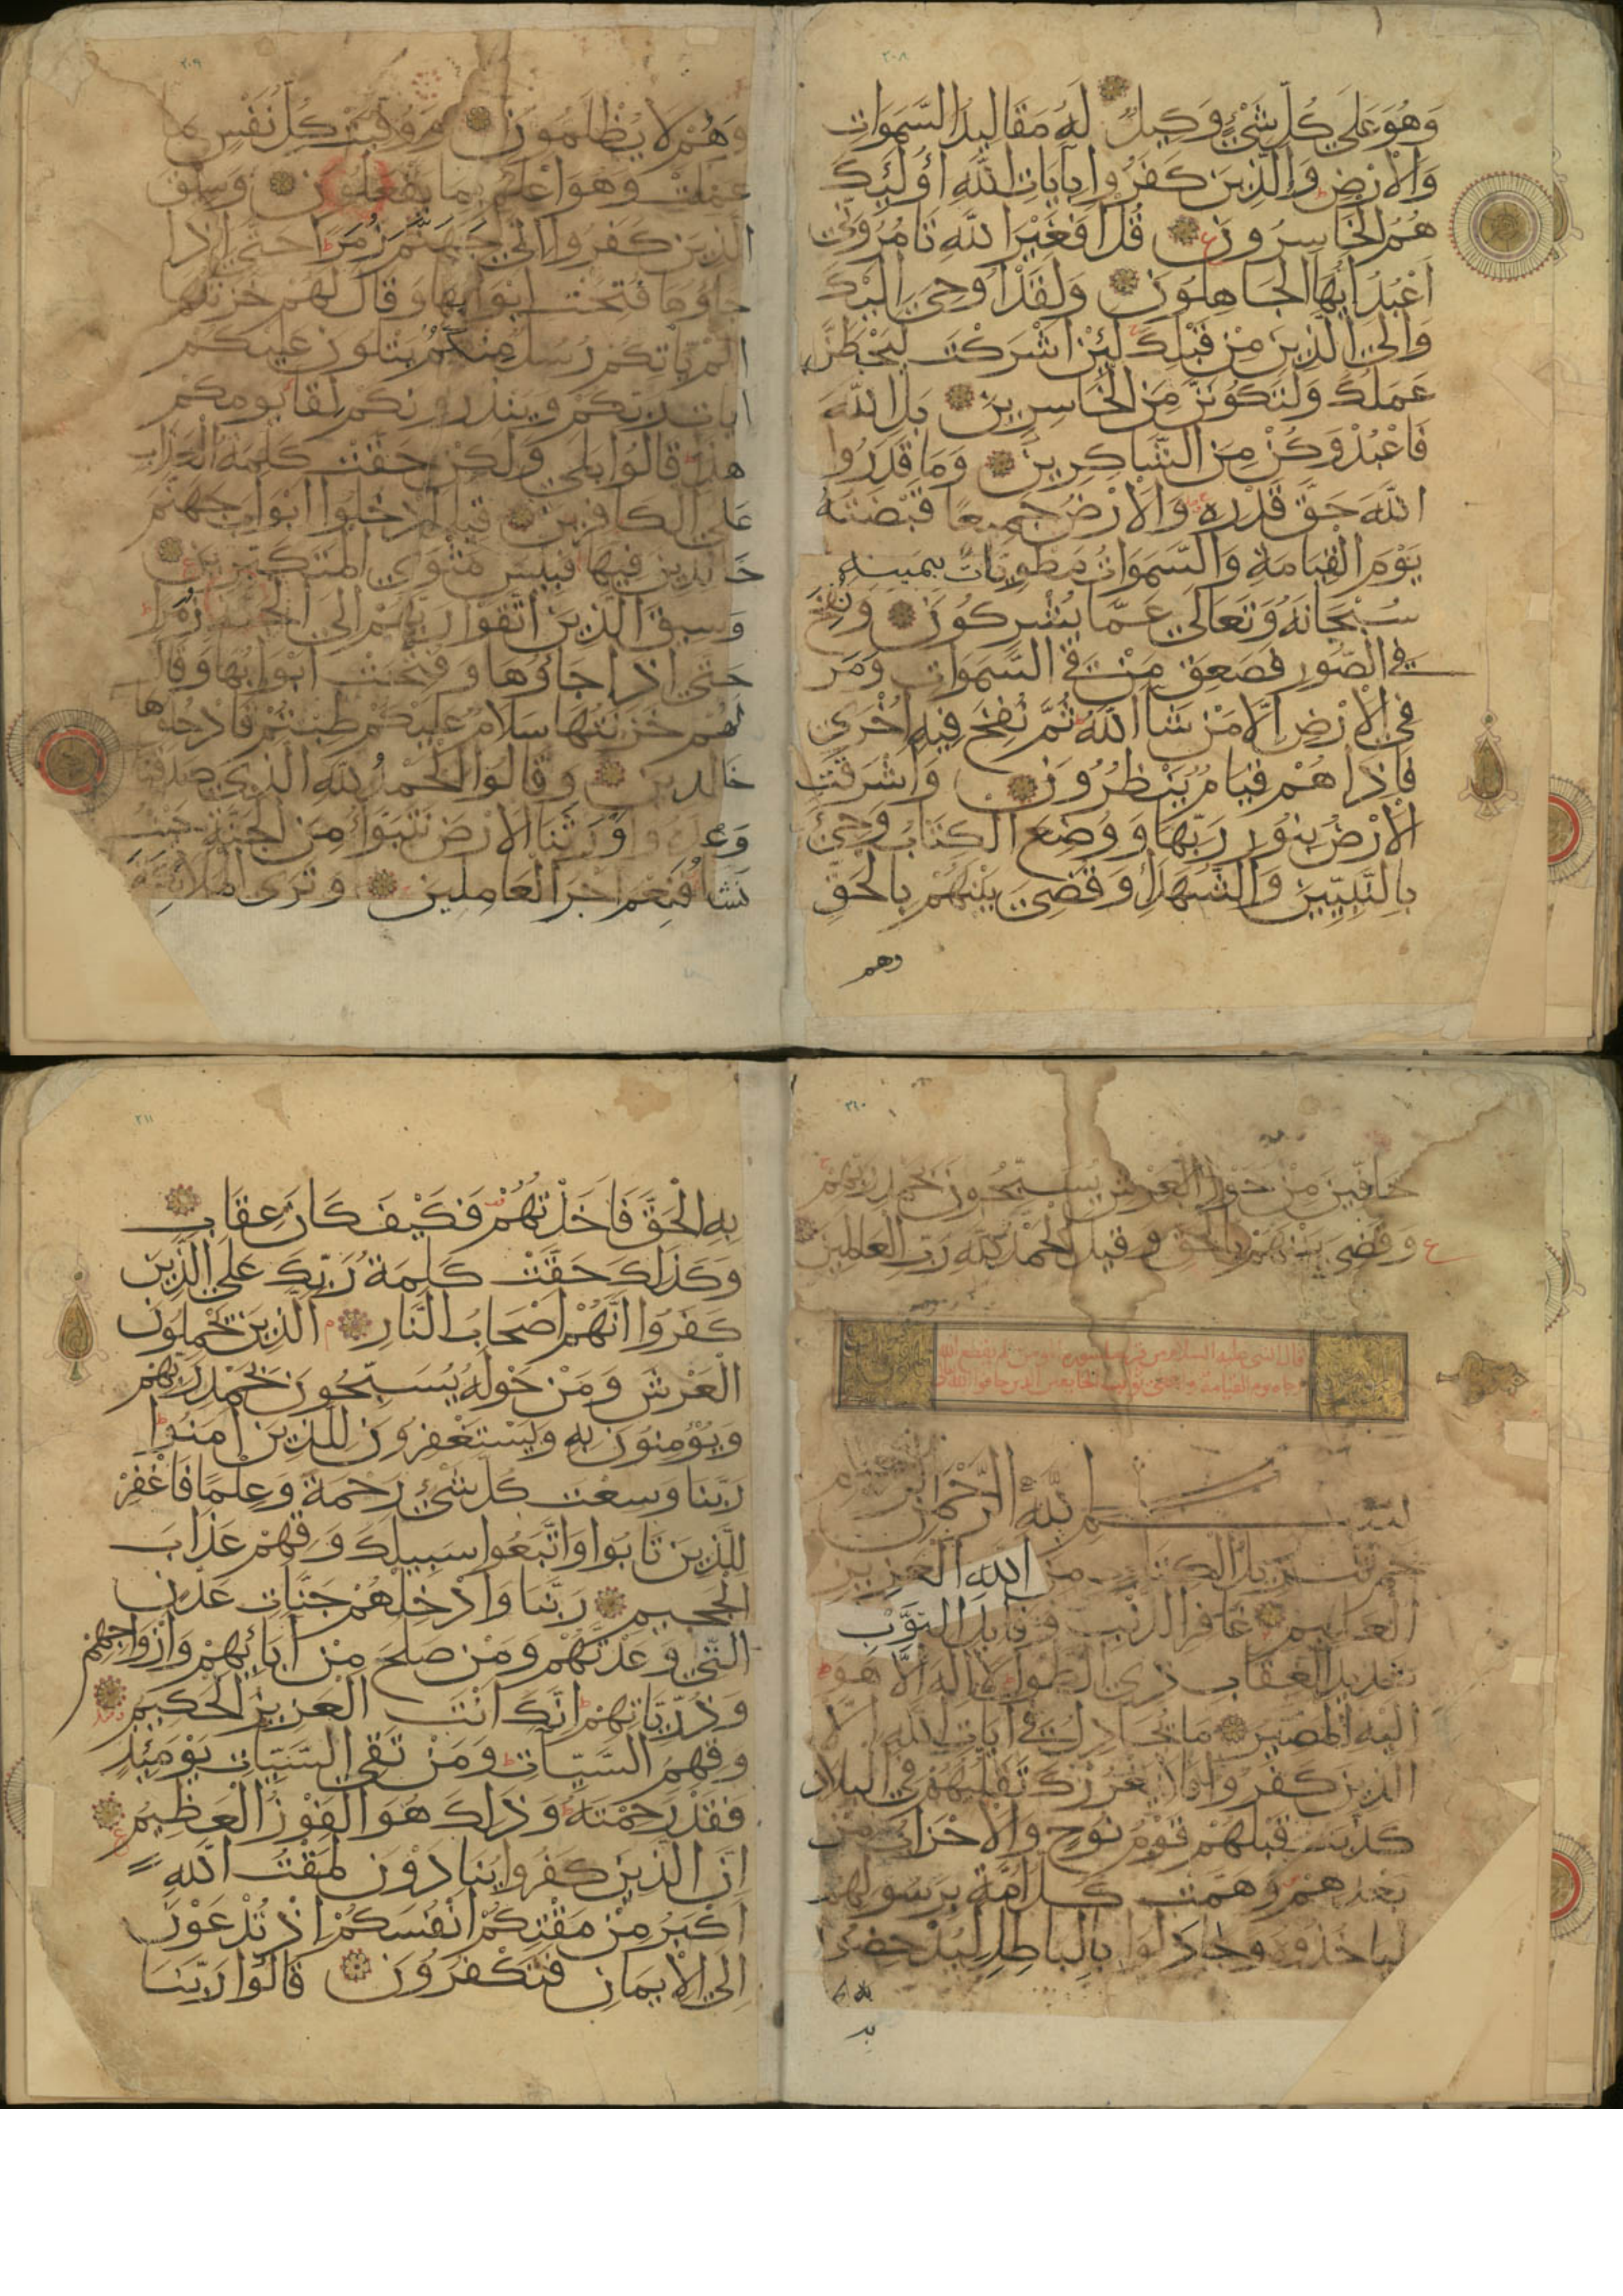 ٢٠٨
وَهُوَ عَلَى كُلِّ شَيْءٍ وَكِيلٌ لَهُ مَقَالِيدُ السَّمَوَاتِ
وَالْاَرْضِ وَالَّذِينَ كَفَرُوا بِآيَاتِ اللَّهِ اُولَئِكَ
هُمُ الْخَاسِرُونَ قُلْ اَفَغَيْرَ اللَّهِ تَامُرُونِّي
اَعْبُدُ اَيُّهَا الْجَاهِلُونَ وَلَقَدْ اُوحِيَ اِلَيْكَ
وَاِلَى الَّذِينَ مِنْ قَبْلِكَ لَئِنْ اَشْرَكْتَ لَيَحْبَطَنَّ
عَمَلُكَ وَلَتَكُونَنَّ مِنَ الْخَاسِرِينَ بَلِ اللَّهَ
فَاعْبُدْ وَكُنْ مِنَ الشَّاكِرِينَ وَمَا قَدَرُوا
اللَّهَ حَقَّ قَدْرِهِ وَالْاَرْضُ جَمِيعًا قَبْضَتُهُ
يَوْمَ الْقِيَامَةِ وَالسَّمَوَاتُ مَطْوِيَّاتٌ بِيَمِينِهِ
سُبْحَانَهُ وَتَعَالَى عَمَّا يُشْرِكُونَ وَنُفِخَ
فِي الصُّورِ فَصَعِقَ مَنْ فِي السَّمَوَاتِ وَمَنْ
فِي الْاَرْضِ اِلَّا مَنْ شَا اللَّهُ ثُمَّ نُفِخَ فِيهِ اُخْرَى
فَاِذَا هُمْ قِيَامٌ يَنْظُرُونَ وَاَشْرَقَتِ
الْاَرْضُ بِنُورِ رَبِّهَا وَوُضِعَ الْكِتَابُ وَجِيْءَ
بِالنَّبِيِّينَ وَالشُّهَدَاءِ وَقُضِيَ بَيْنَهُمْ بِالْحَقِّ
وهم
٢٠٩
وَهُمْ لَا يُظْلَمُونَ وَوُفِّيَتْ كُلُّ نَفْسٍ مَا
عَمِلَتْ وَهُوَ اَعْلَمُ بِمَا يَفْعَلُونَ وَسِيقَ
الَّذِينَ كَفَرُوا اِلَى جَهَنَّمَ زُمَرًا حَتَّى اِذَا
جَاؤُهَا فُتِحَتْ اَبْوَابُهَا وَقَالَ لَهُمْ خَزَنَتُهَا
اَلَمْ يَاتِكُمْ رُسُلٌ مِنْكُمْ يَتْلُونَ عَلَيْكُمْ
اٰيَاتِ رَبِّكُمْ وَيُنْذِرُونَكُمْ لِقَا يَوْمِكُمْ
هَذَا قَالُوا بَلَى وَلَكِنْ حَقَّتْ كَلِمَةُ الْعَذَابِ
عَلَى الْكَافِرِينَ قِيلَ ادْخُلُوا اَبْوَابَ جَهَنَّمَ
خَالِدِينَ فِيهَا فَبِيْسَ مَثْوَى الْمُتَكَبِّرِينَ
وَسِيقَ الَّذِينَ اتَّقَوْا رَبَّهُمْ اِلَى الْجَنَّةِ زُمَرًا
حَتَّى اِذَا جَاؤُهَا وَفُتِحَتْ اَبْوَابُهَا وَقَالَ
لَهُمْ خَزَنَتُهَا سَلَامٌ عَلَيْكُمْ طِبْتُمْ فَادْخُلُوهَا
خَالِدِينَ وَقَالُوا الْحَمْدُ لِلَّهِ الَّذِي صَدَقَنَا
وَعْدَهُ وَاَوْرَثَنَا الْاَرْضَ نَتَبَوَّاُ مِنَ الْجَنَّةِ حَيْثُ
نَشَا فَنِعْمَ اَجْرُ الْعَامِلِينَ وَتَرَى الْمَلَائِكَةَ
٢١٠
حَافِّينَ مِنْ حَوْلِ الْعَرْشِ يُسَبِّحُونَ بِحَمْدِ رَبِّهِمْ
وَقُضِيَ بَيْنَهُمْ بِالْحَقِّ وَقِيلَ الْحَمْدُ لِلَّهِ رَبِّ الْعَالَمِينَ
قال النبي عليه السلام من قرا سورة لم يقطع الله
رجاه يوم القيامة
بِسْمِ اللَّهِ الرَّحْمَنِ الرَّحِيمِ
حم تَنْزِيلُ الْكِتَابِ مِنَ اللَّهِ الْعَزِيزِ
الْعَلِيمِ غَافِرِ الذَّنْبِ وَقَابِلِ التَّوْبِ
شَدِيدِ الْعِقَابِ ذِي الطَّوْلِ لَا اِلَهَ اِلَّا هُوَ
اِلَيْهِ الْمَصِيرُ مَا يُجَادِلُ فِي آيَاتِ اللَّهِ اِلَّا
الَّذِينَ كَفَرُوا فَلَا يَغْرُرْكَ تَقَلُّبُهُمْ فِي الْبِلَادِ
كَذَّبَتْ قَبْلَهُمْ قَوْمُ نُوحٍ وَالْاَحْزَابُ مِنْ
بَعْدِهِمْ وَهَمَّتْ كُلُّ اُمَّةٍ بِرَسُولِهِمْ
لِيَاخُذُوهُ وَجَادَلُوا بِالْبَاطِلِ لِيُدْحِضُوا
به
٢١١
بِهِ الْحَقَّ فَاَخَذْتُهُمْ فَكَيْفَ كَانَ عِقَابِ
وَكَذَلِكَ حَقَّتْ كَلِمَةُ رَبِّكَ عَلَى الَّذِينَ
كَفَرُوا اَنَّهُمْ اَصْحَابُ النَّارِ الَّذِينَ يَحْمِلُونَ
الْعَرْشَ وَمَنْ حَوْلَهُ يُسَبِّحُونَ بِحَمْدِ رَبِّهِمْ
وَيُؤْمِنُونَ بِهِ وَيَسْتَغْفِرُونَ لِلَّذِينَ اٰمَنُوا
رَبَّنَا وَسِعْتَ كُلَّ شَيْءٍ رَحْمَةً وَعِلْمًا فَاغْفِرْ
لِلَّذِينَ تَابُوا وَاتَّبَعُوا سَبِيلَكَ وَقِهِمْ عَذَابَ
الْجَحِيمِ رَبَّنَا وَاَدْخِلْهُمْ جَنَّاتِ عَدْنٍ
الَّتِي وَعَدْتَهُمْ وَمَنْ صَلَحَ مِنْ آبَائِهِمْ وَاَزْوَاجِهِمْ
وَذُرِّيَّاتِهِمْ اِنَّكَ اَنْتَ الْعَزِيزُ الْحَكِيمُ
وَقِهِمُ السَّيِّاٰتِ وَمَنْ تَقِي السَّيِّاٰتِ يَوْمَئِذٍ
فَقَدْ رَحِمْتَهُ وَذَلِكَ هُوَ الْفَوْزُ الْعَظِيمُ
اِنَّ الَّذِينَ كَفَرُوا يُنَادَوْنَ لَمَقْتُ اللَّهِ
اَكْبَرُ مِنْ مَقْتِكُمْ اَنْفُسَكُمْ اِذْ تُدْعَوْنَ
اِلَى الْاِيمَانِ فَتَكْفُرُونَ قَالُوا رَبَّنَا